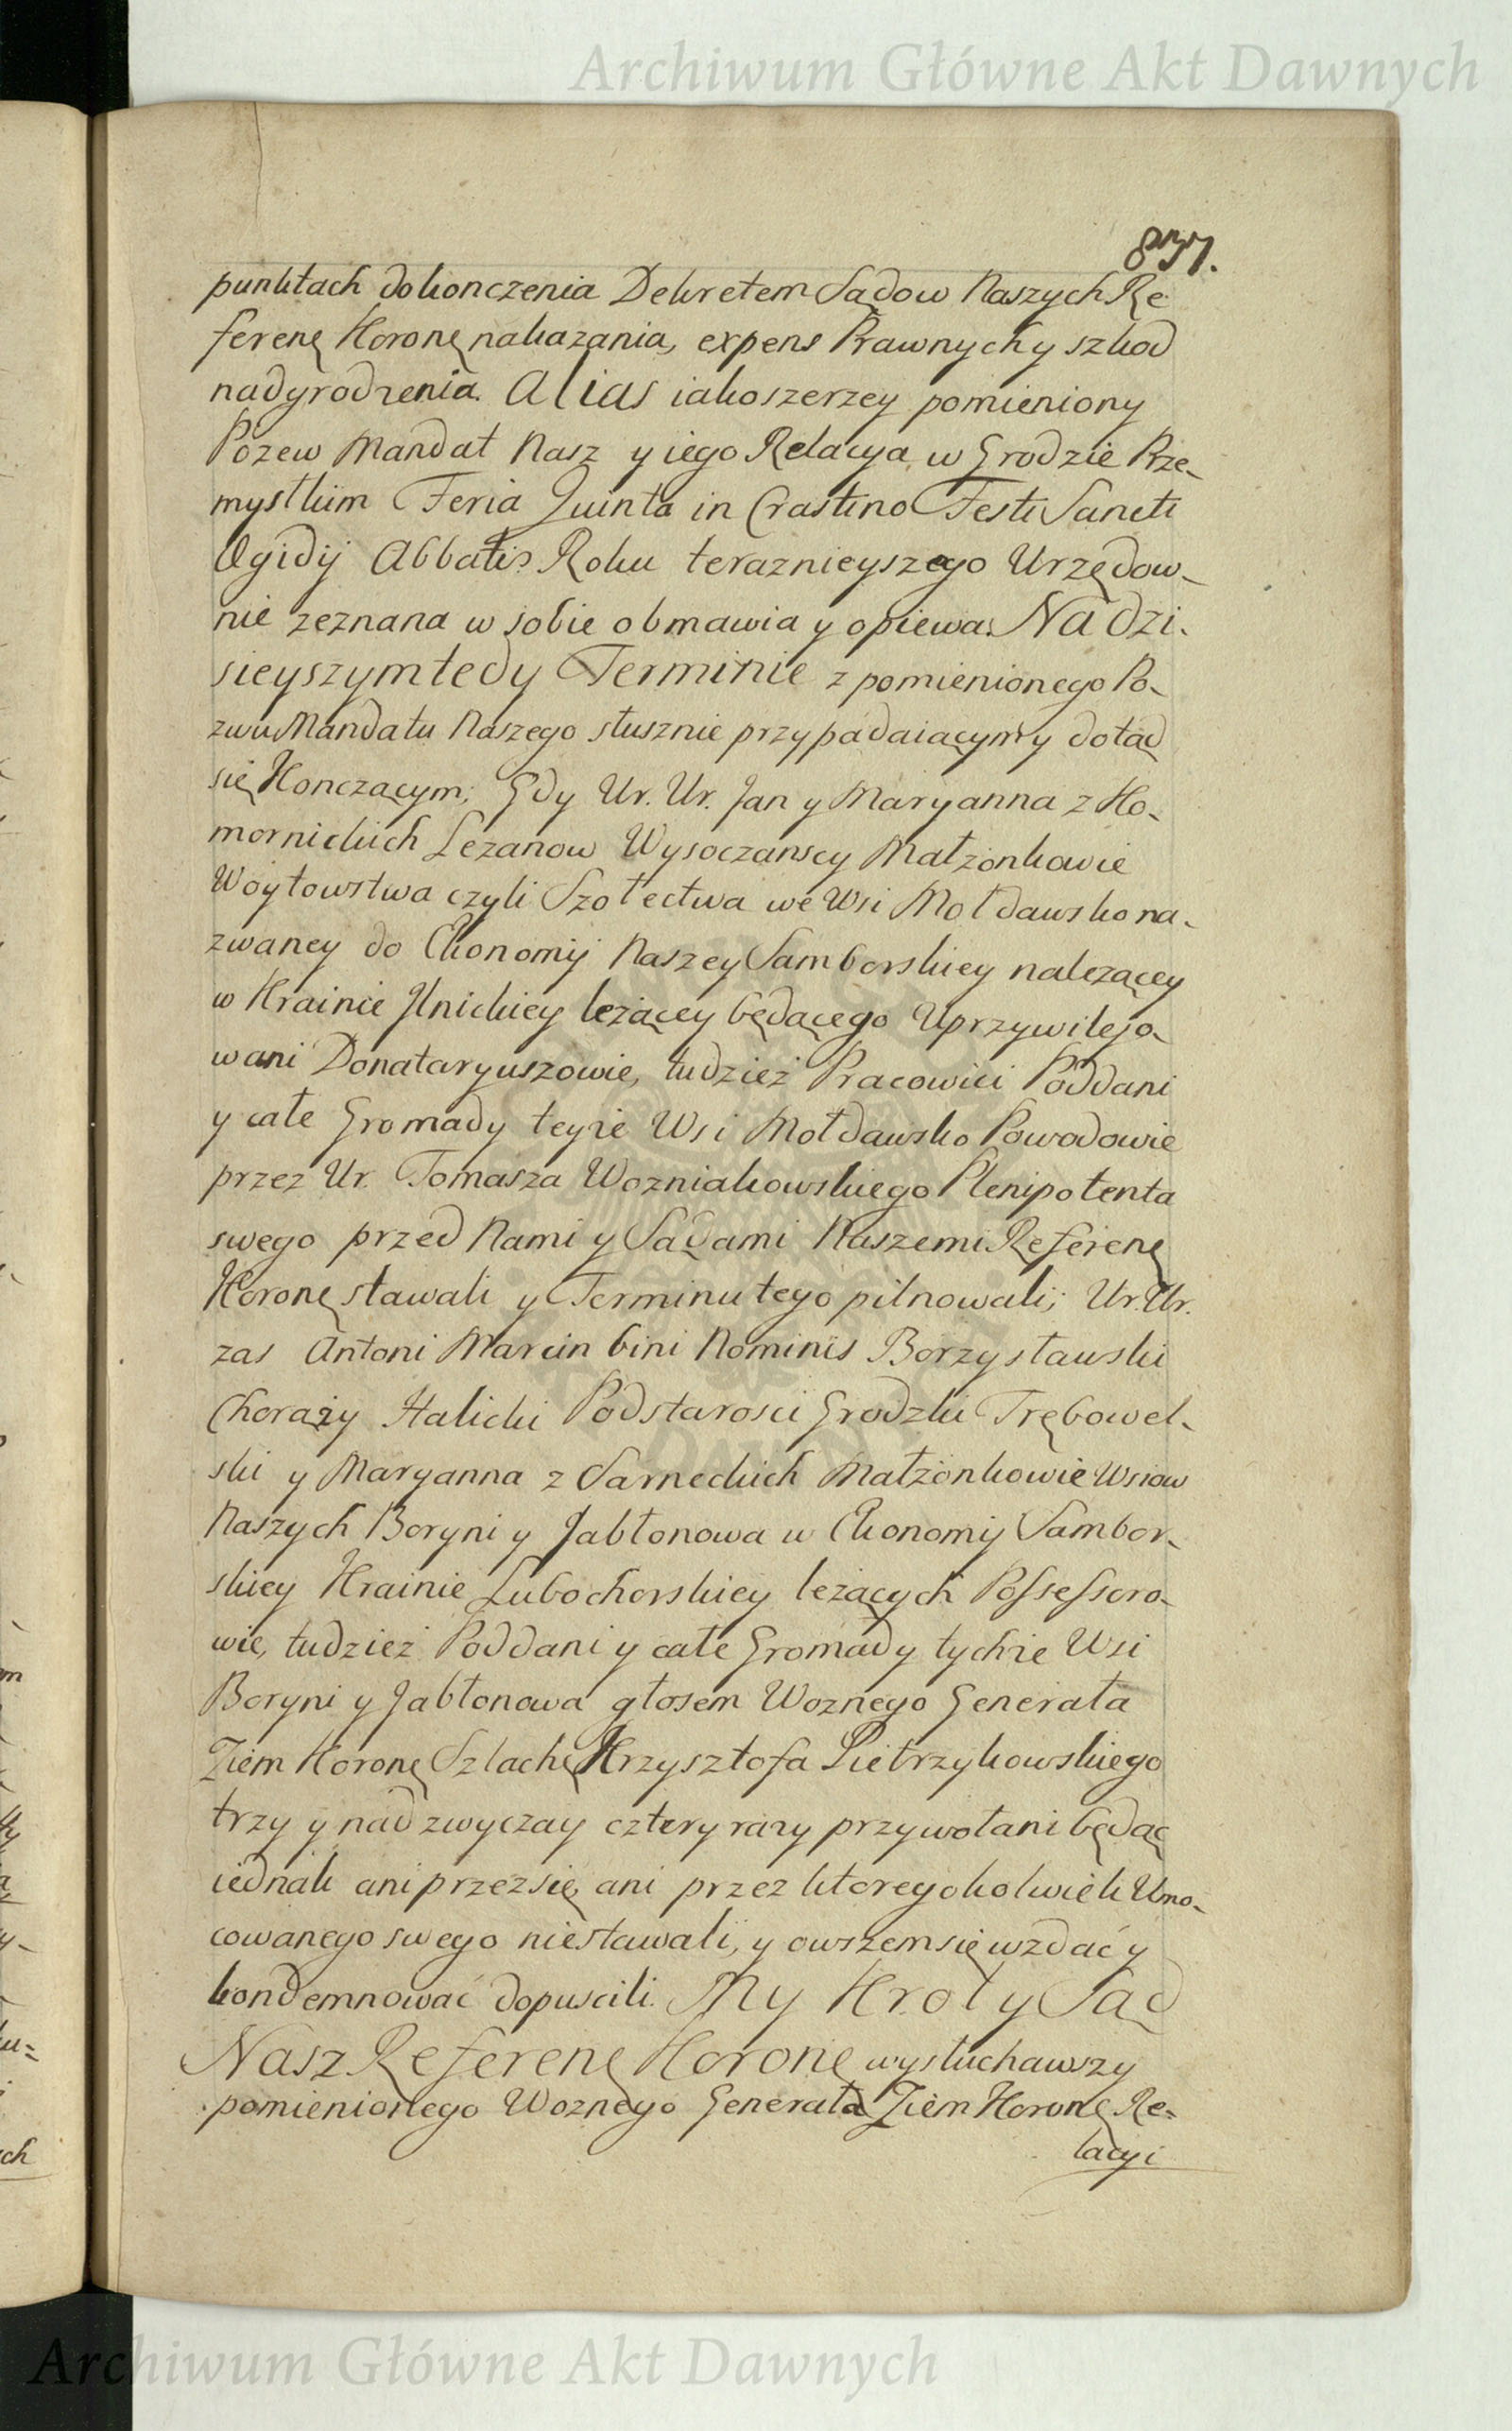 Archiwum Główne Akt Dawnych
837.
punktach dokonczenia Dekretem Sądow Naszych Re
ferenę Koronę nakazania, expens Prawnych y szkod
nadgrodzenia. Alias iako szerzey pomieniony
Pozew Mandat Nasz y iego Relacya w Grodzie Prze-
myslkim Feria Quinta in Crastino Festi Sancti
Ægidij Abbatis Roku teraznieyszego Urzędow-
nie zeznana w sobie obmawia y opiewa. Na dzi-
sieyszym tedy Terminie z pomienionego Po-
zwu Mandatu Naszego słusznie przypadaiącym y dotąd
się Konczącym; Gdy Ur. Ur. Jan y Maryanna z Ko-
mornickich Lezanow Wysoczanscy Małżonkowie
Woytowstwa czyli Szołectwa we Wsi Mołdawsko na-
zwaney do Ekonomij Naszey Samborskiey nalezącey
w Krainie Ilnickiey leżącey będącego Uprzywilejo-
wani Donataryuszowie, tudzież Pracowici Poddani
y całe Gromady teyże Wsi Mołdawsko Powodowie
przez Ur. Tomasza Wozniakowskiego Plenipotenta
swego przed Nami y Sądami Naszemi Referenę
Koronę stawali y Terminu tego pilnowali; Ur. Ur.
zas Antoni Marcin bini Nominis Borzysławski
Chorąży Halicki Podstarosci Grodzki Trębowel-
ski y Maryanna z Sarneckich Małżonkowie Wsiow
Naszych Boryni y Jabłonowa w Ekonomij Sambor-
skiey Krainie Lubochorskiey leżących Possessoro-
wie, tudzież Poddani y całe Gromady tychże Wsi
Boryni y Jabłonowa głosem Woznego Generała
Ziem Koronę Szlachę Krzysztofa Pietrzykowskiego
trzy y nad zwyczay cztery razy przywołani będąc
iednak ani przez się, ani przez ktoregokolwiek Umo-
cowanego swego niestawali, y owszem się wzdać y
kondemnować dopuscili. My Krol y Sąd
Nasz Referenę Koronę wysłuchawszy
pomienionego Woznego Generała Ziem Koronę Re-
lacyi
Archiwum Główne Akt Dawnych